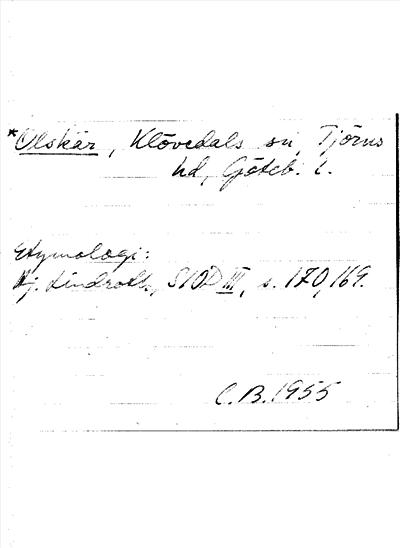 *Olskär, Klövedals sn, Tjörns
hd, Göteb. l.
Etymologi:
Hj. Lindroth, SIOD III, s. 170, 169.
C.B. 1955